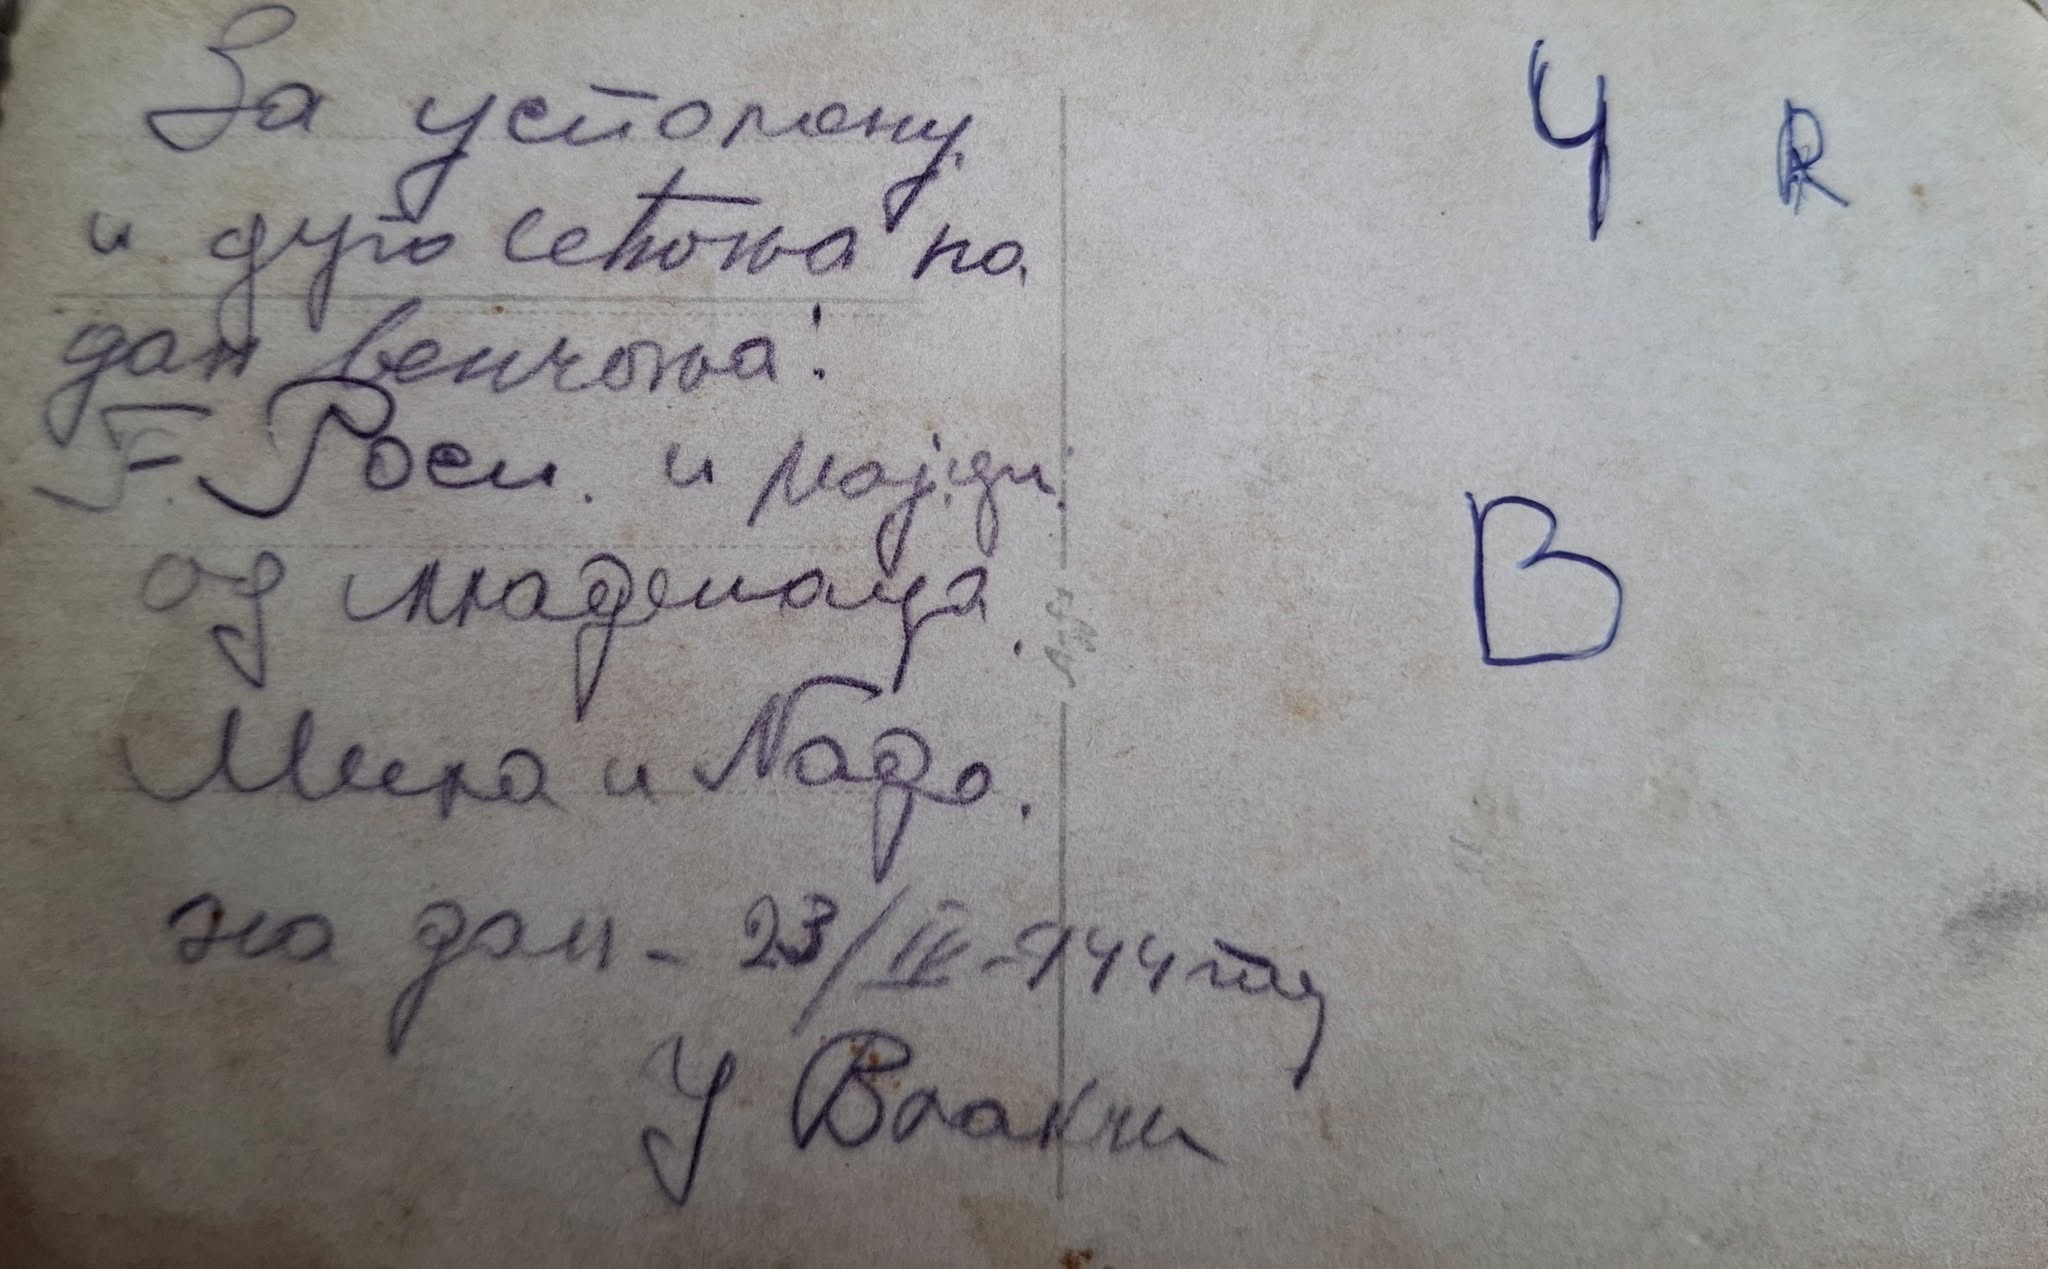 За успомену
и дуго сећања на
дан венчања!
Г. Роси. и мајди.
од младенаца.
Мира и Nадо.
на дан - 23/IV-944 год
У Влакчи
Ч R
В